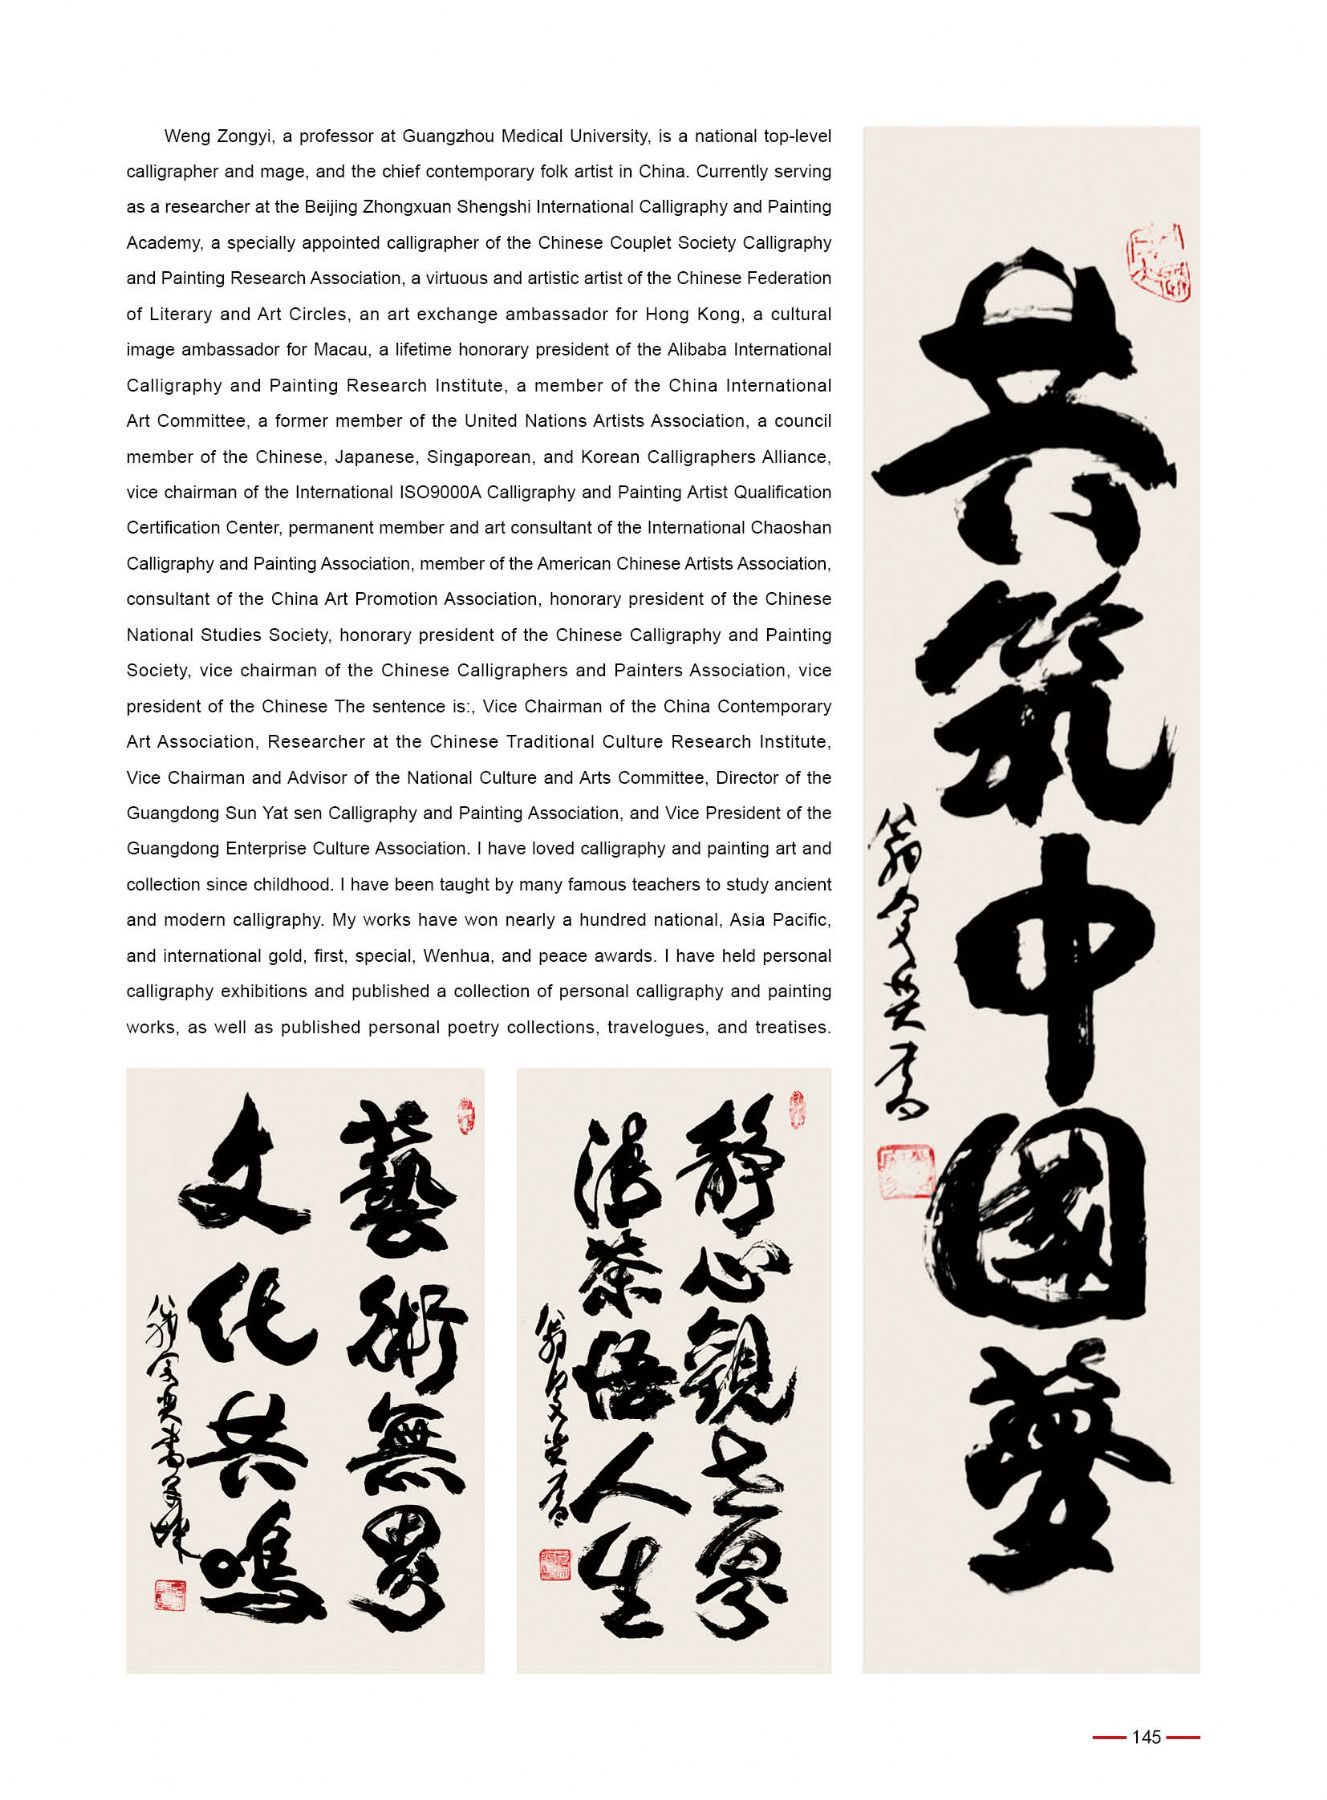 Weng Zongyi, a professor at Guangzhou Medical University, is a national top-level
calligrapher and mage, and the chief contemporary folk artist in China. Currently serving
as a researcher at the Beijing Zhongxuan Shengshi International Calligraphy and Painting
Academy, a specially appointed calligrapher of the Chinese Couplet Society Calligraphy
and Painting Research Association, a virtuous and artistic artist of the Chinese Federation
of Literary and Art Circles, an art exchange ambassador for Hong Kong, a cultural
image ambassador for Macau, a lifetime honorary president of the Alibaba International
Calligraphy and Painting Research Institute, a member of the China International
Art Committee, a former member of the United Nations Artists Association, a council
member of the Chinese, Japanese, Singaporean, and Korean Calligraphers Alliance,
vice chairman of the International ISO9000A Calligraphy and Painting Artist Qualification
Certification Center, permanent member and art consultant of the International Chaoshan
Calligraphy and Painting Association, member of the American Chinese Artists Association,
consultant of the China Art Promotion Association, honorary president of the Chinese
National Studies Society, honorary president of the Chinese Calligraphy and Painting
Society, vice chairman of the Chinese Calligraphers and Painters Association, vice
president of the Chinese The sentence is:, Vice Chairman of the China Contemporary
Art Association, Researcher at the Chinese Traditional Culture Research Institute,
Vice Chairman and Advisor of the National Culture and Arts Committee, Director of the
Guangdong Sun Yat sen Calligraphy and Painting Association, and Vice President of the
Guangdong Enterprise Culture Association. I have loved calligraphy and painting art and
collection since childhood. I have been taught by many famous teachers to study ancient
and modern calligraphy. My works have won nearly a hundred national, Asia Pacific,
and international gold, first, special, Wenhua, and peace awards. I have held personal
calligraphy exhibitions and published a collection of personal calligraphy and painting
works, as well as published personal poetry collections, travelogues, and treatises.
共筑中國夢
藝術無界
文化共鳴
靜心觀世界
清茶悟人生
145